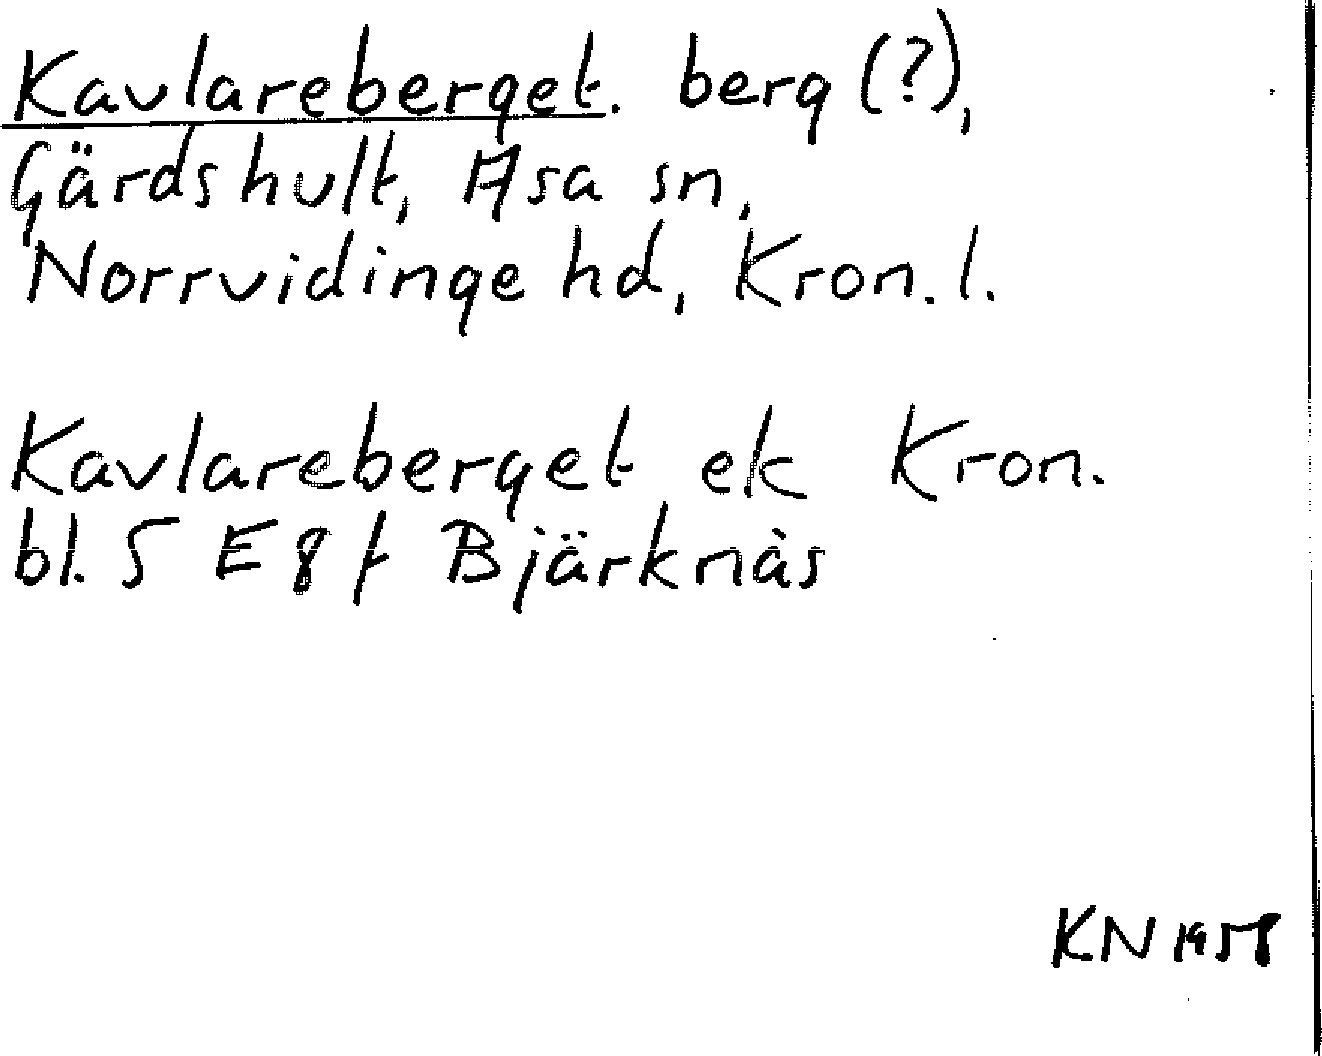 Kavlareberget. berg (?),
Gärdshult, Asa sn,
Norrvidinge hd, Kron. l.
Kavlareberget ek Kron.
bl. 5 E 8 f Bjärknäs
KN 1958